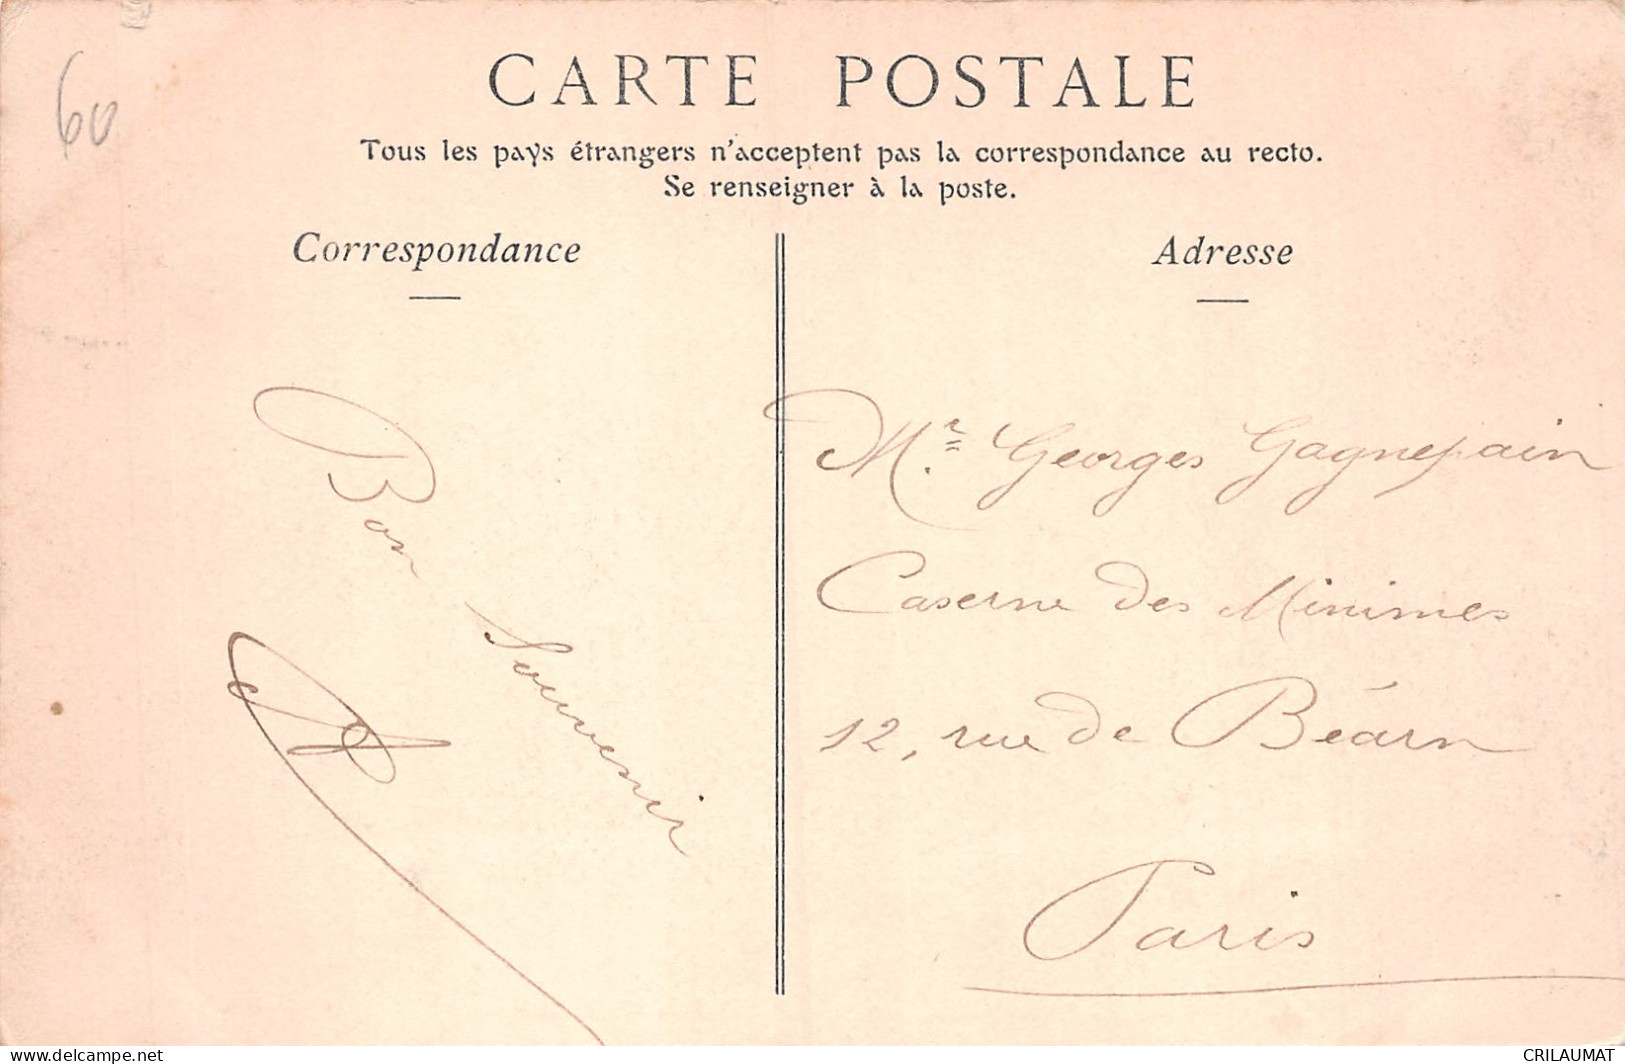 60
CARTE POSTALE
Tous les pays étrangers n'acceptent pas la correspondance au recto.
Se renseigner à la poste.
Correspondance
Adresse
Bon
Souvenir
Mr. Georges Gagnepain
Caserne des Minimes
12, rue de Béarn
Paris
www.delcampe.net
CRILAUMAT